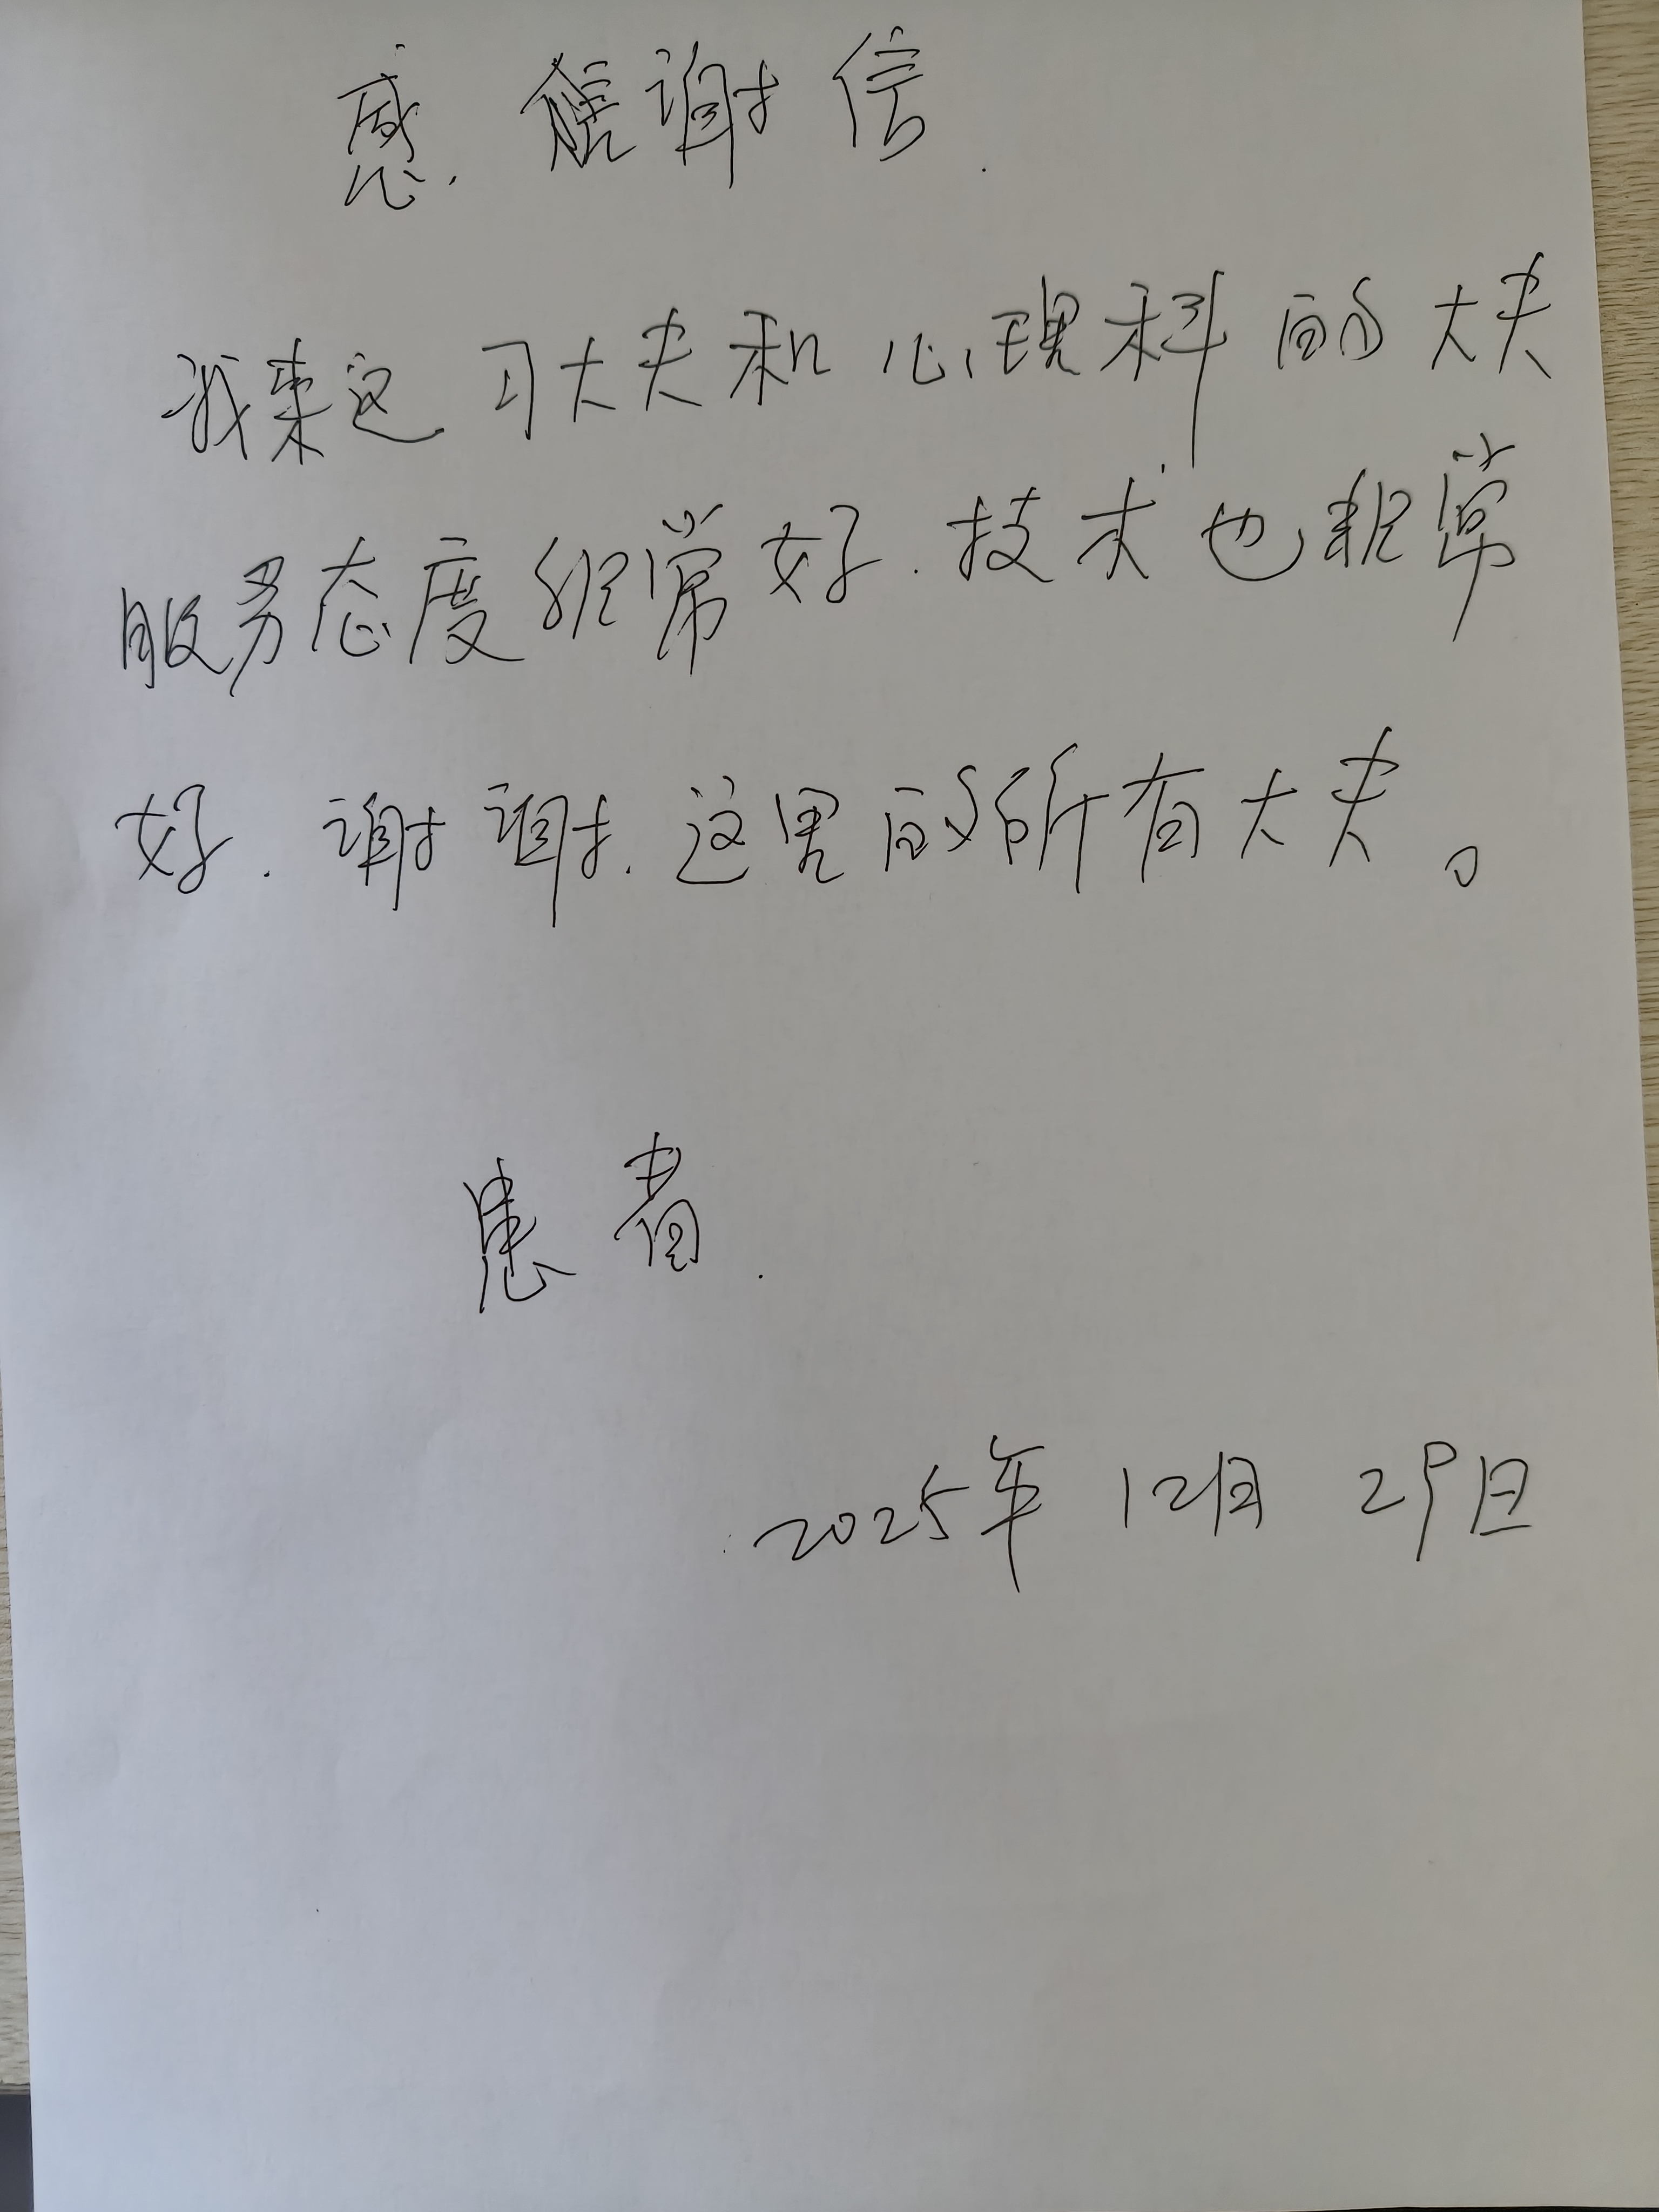 感谢信
我来这 习大夫和心理科的大夫
服务态度非常好.技术也非常
好.谢谢.这里的所有大夫。
患者.
2025年12月29日